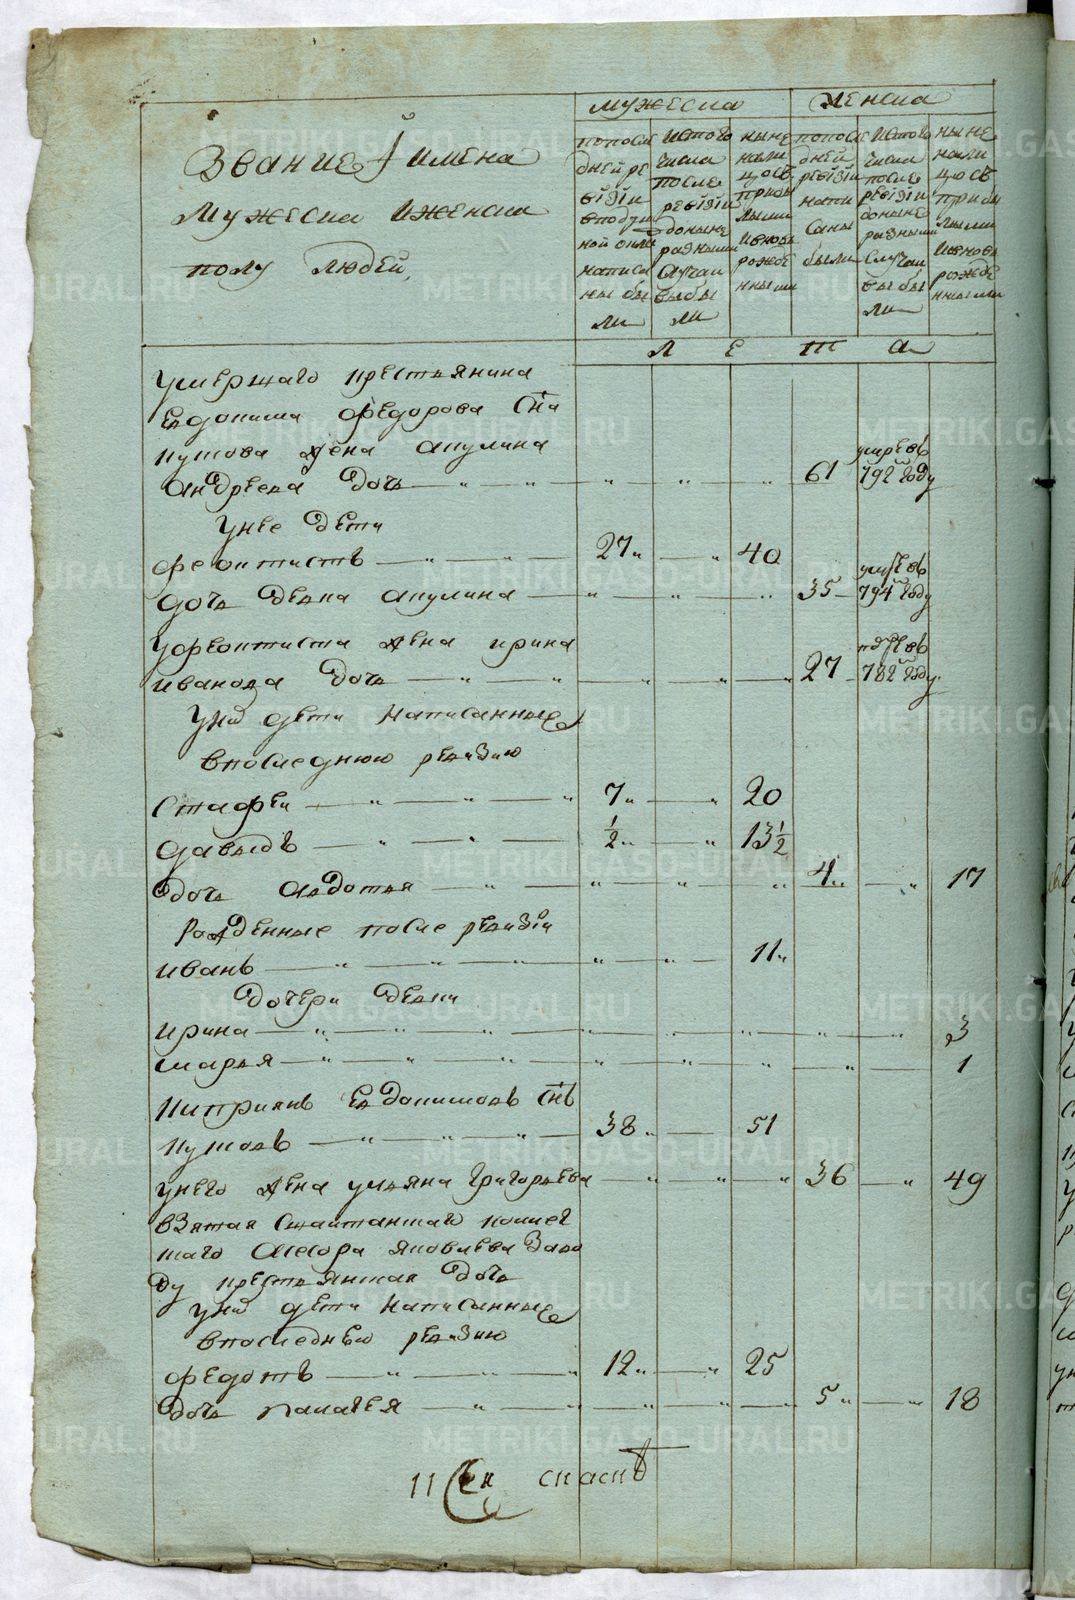 Звание и имена
мужеска иженска
полу людей,
мужеска
женска
попосле
дней ре
визiи
вподуш
ной окла
написа
ны бы
ли
истого
числа
после
ревизiи
доныне
разными
случаи
выбы
ли
ныне
нали
цо съ
прибы
лыми
ивновь
рожде
нными
попосле
дней
ревизiи
напи
саны
были
истого
числа
после
ревизiи
доныне
разными
случаи
выбы
ли
ныне
нали
цо съ
прибы
лыми
ивновь
рожде
нными
л е т а
умершаго крестьянина
Евдокима федорова сна
путова жена акулина
андреева дочь 61 умре въ 792м году
унее дети
феоктистъ 27 40
дочь девка акулина 35 умре въ 794м году
уфеоктиста жена ирина
иванова дочь 27 782м году
уних дети написанные
впоследнюю ревизию
Стафеи 7 20
давыдъ ½ 13½
дочь авдотья 4 17
Рожденные после ревизiи
иванъ 11
дочери девки
ирина 3
марья 1
киприянъ Евдокимовъ снъ
путовъ 38 51
унего жена ульяна григорьева 36 49
взятая Сшайтанскаго коллеж
скаго асесора яковлева заво
ду крестьянская дочь
уних дети написанные
впоследнею ревизию
федотъ 12 25
дочь палагея 5 18
11